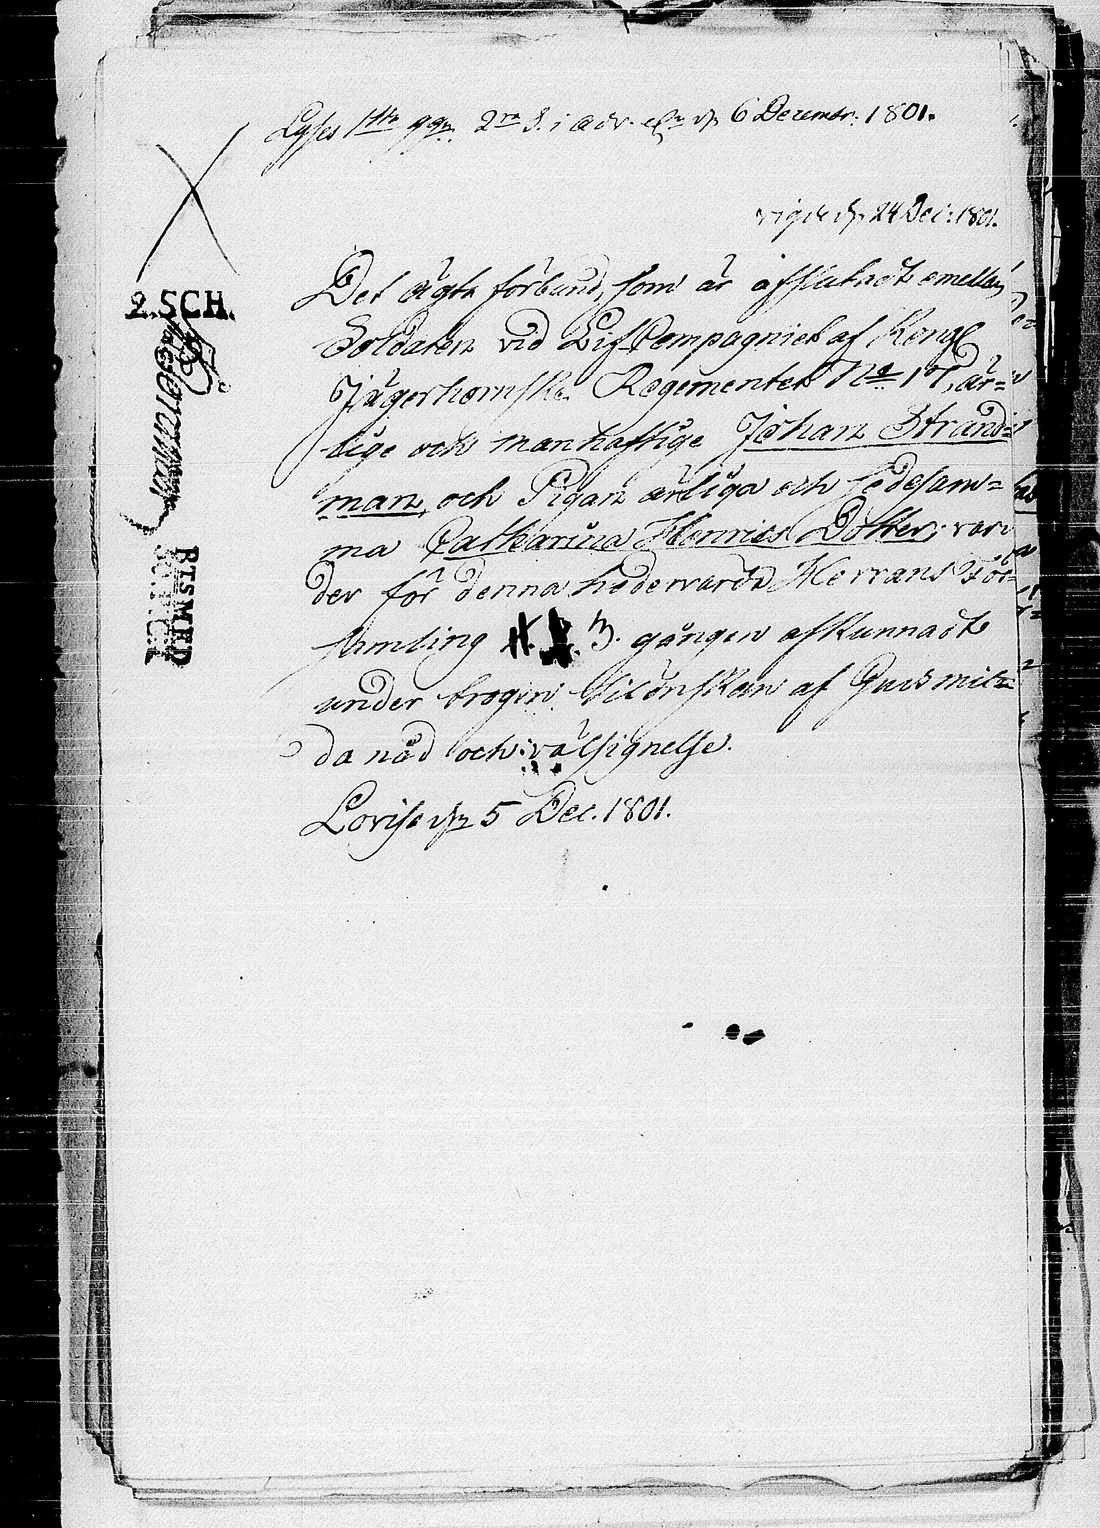 Lyses 1sta ggn 2ra S. i Adv. 6 Decembr. 1801.
vigde d. 24 Dec: 1801.
Det ägta förbund, som är afslutadt emellan
Soldaten vid Lif Compagniet af Kongl
Jägerhornska Regementet No 17, är=
lige och manhaftige Johan Strand=
man, och Pigan ärliga och sedesam=
ma Catharina Henrics Dotter; var
der för denna hedervärda Herrans För=
samling 3. gången afkunnadt
under trogen tillönskan af Guds mil=
da nåd och välsignelse.
Lovisa d. 5 Dec. 1801.
2.SCH.